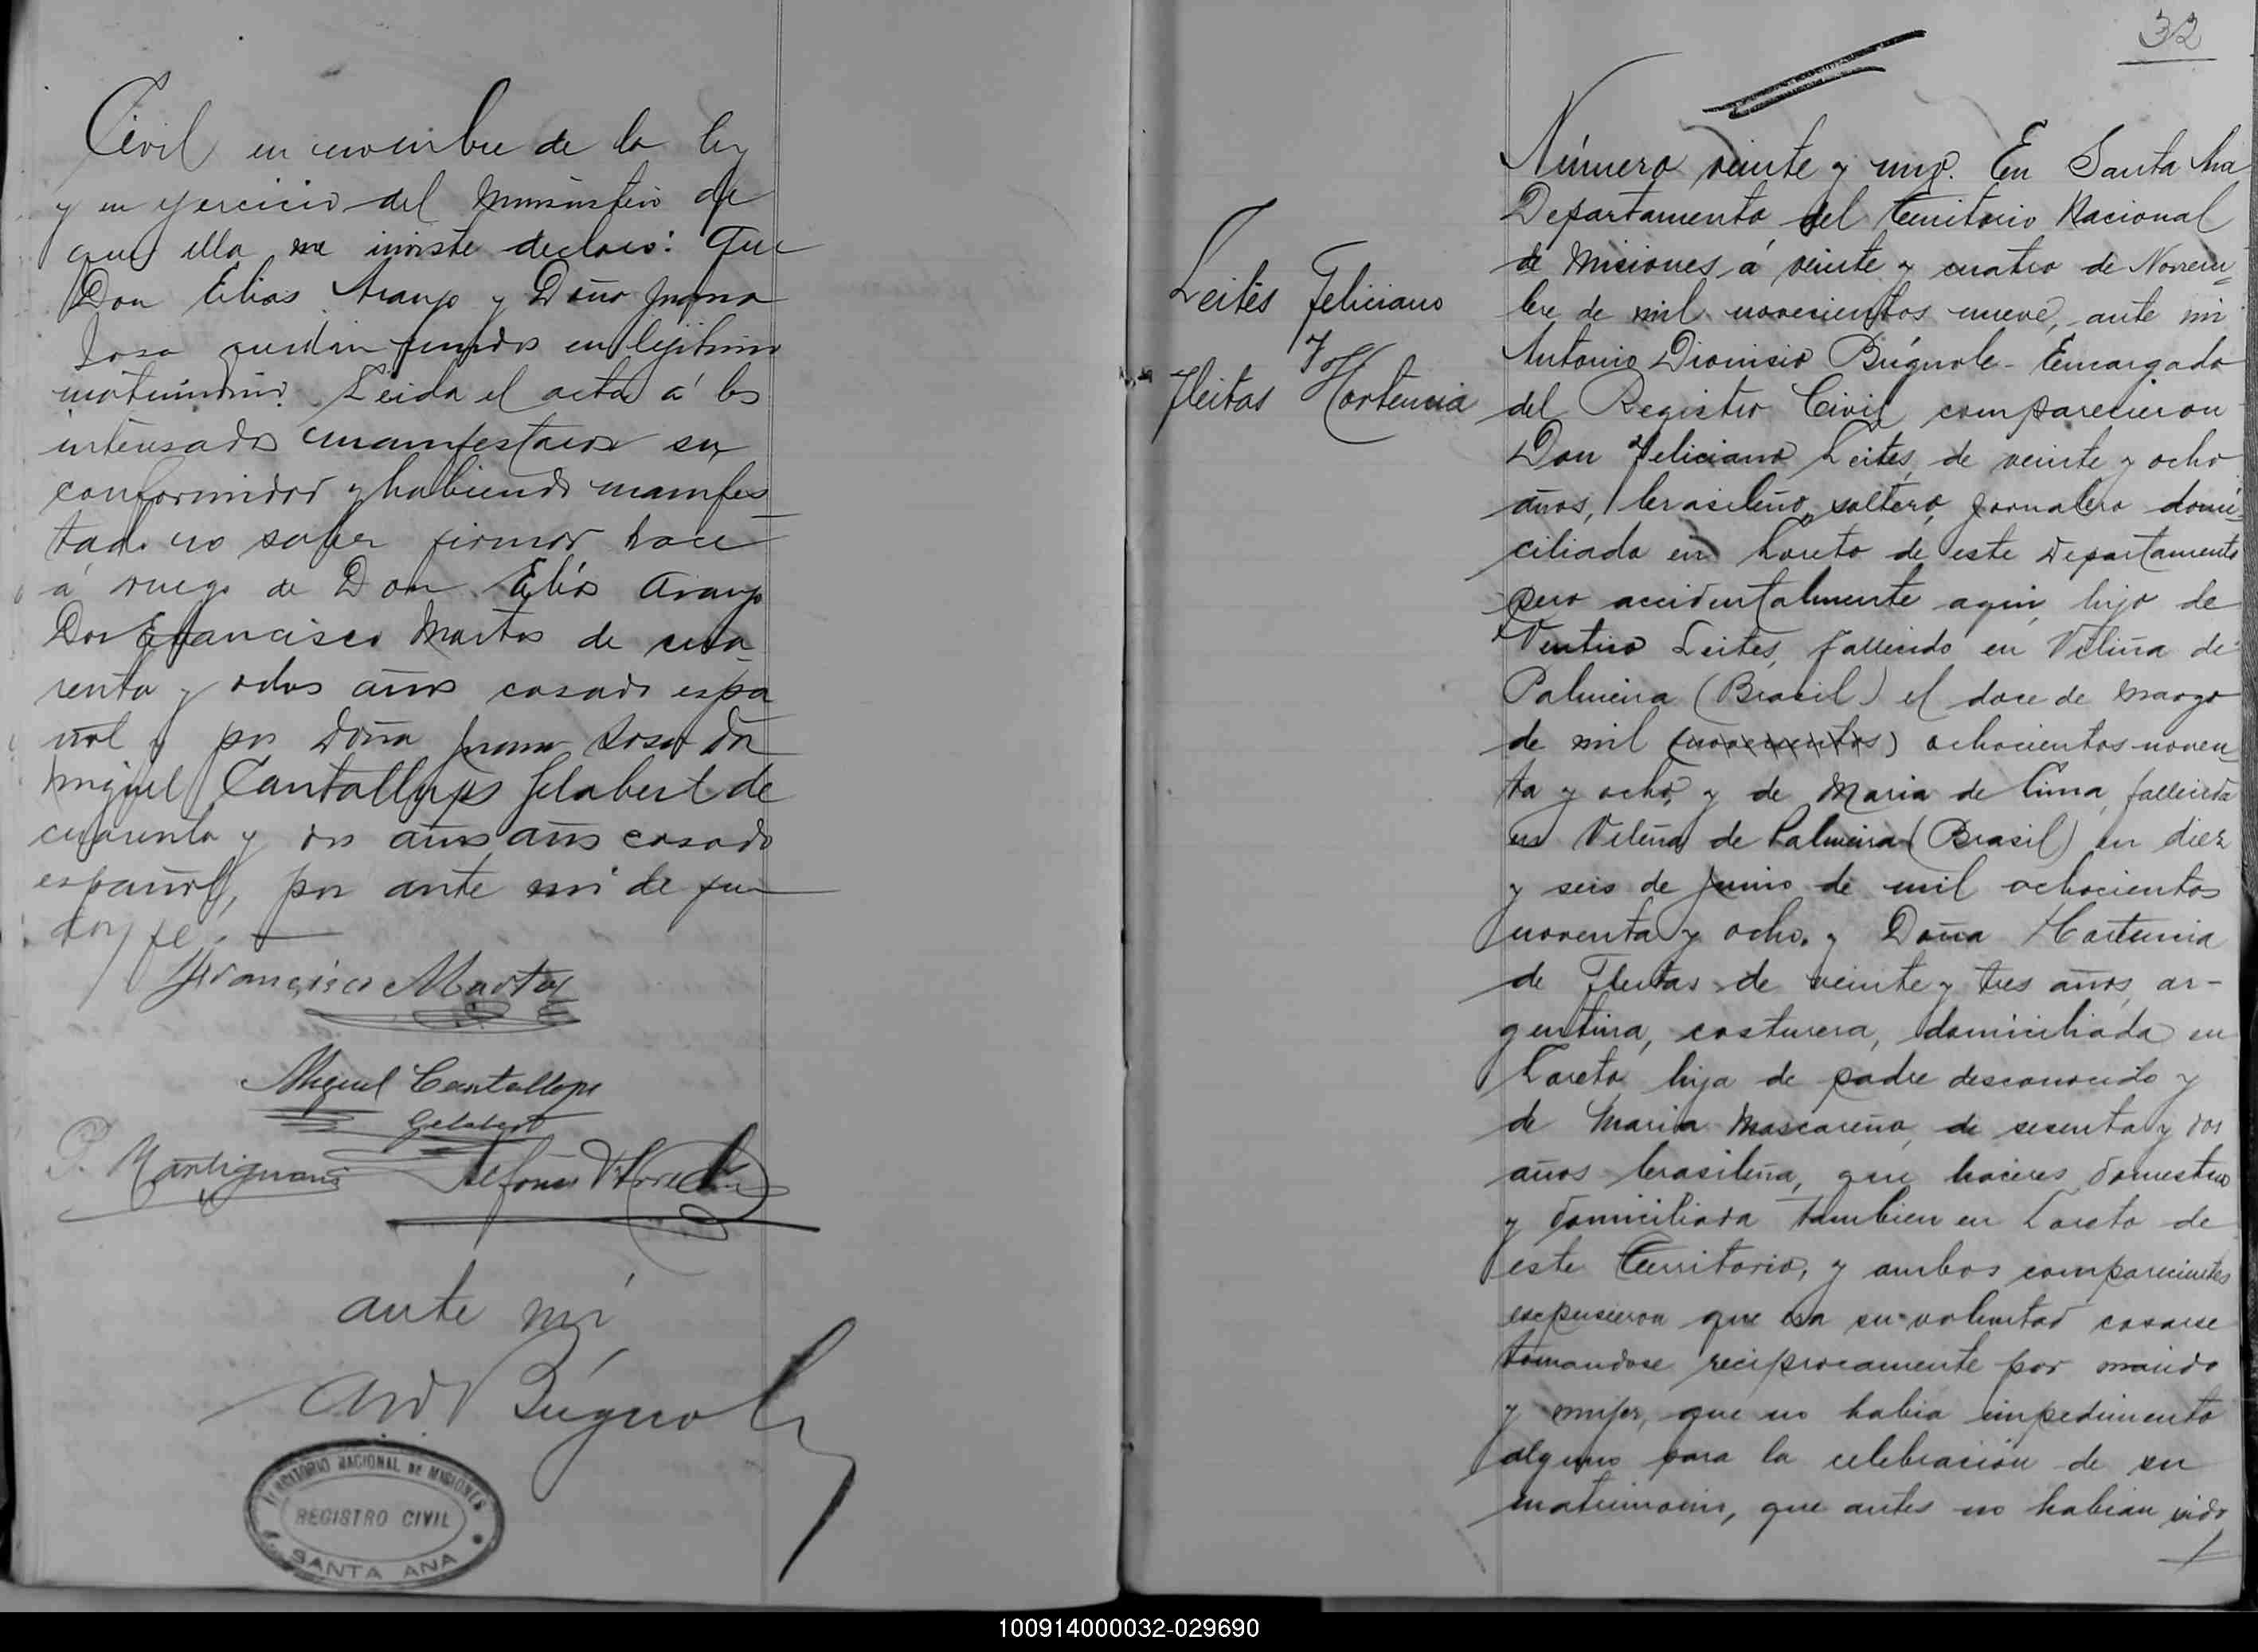 Civil en nombre de la ley
y en ejercicio del ministerio de
que ella me inviste declaro: Que
Don Elias Araujo y Doña Juana
Sosa quedan unidos en lejitimo
matrimonio. Leida el acta á los
interesados manifestaron su
conformidad y habiendo manifes
tado no saber firmar hace
á ruego de Don Elías Araujo
Don Francisco Martos de cua
renta y ochos años casado espa
ñol y por Doña Juana Sosa Don
Miguel Cantallops Gelabert de
cuarenta y dos años años casado
español, por ante mi de que
doy fe.
Francisco Martos
Miguel Cantallops
Gelabert
P. Martignoni Alfonso
ante mí
Ant D Búgnole
TERRITORIO NACIONAL DE MISIONES
REGISTRO CIVIL
SANTA ANA
32
Leites Feliciano
y
Fleitas Hortencia
Número veinte y uno. En Santa Ana
Departamento del territorio Nacional
de Misiones á veinte y cuatro de Noviem=
bre de mil novecientos nueve, ante mi
Antonio Dionisio Búgnole - Encargado
del Registro Civil comparecieron
Don Feliciano Leites, de veinte y ocho
años, brasileño, soltero, jornalero domi-
ciliado en Loreto de este Departamento
pero accidentalmente aqui, hijo de
Leites, fallecido en de
Palmeira (Brasil) el doce de Marzo
de mil (novecientos) ochocientos noven
ta y ocho, y de Maria de Lima, fallecida
en de Palmeira (Brasil) en diez
y seis de Junio de mil ochocientos
noventa y ocho, y Doña Hortencia
de Fleitas de veinte y tres años, ar-
gentina, costurera, domiciliada en
Loreto, hija de padre desconocido y
de Maria Mascareño, de sesenta y dos
años brasileña, que haceres domestico
y domiciliada tambien en Loreto de
este Territorio, y ambos comparecientes
espusieron que era su voluntad casarse
tomandose reciprocamente por marido
y mujer, que no habia impedimento
alguno para la celebración de su
matrimonio, que antes no habian sido
100914000032-029690